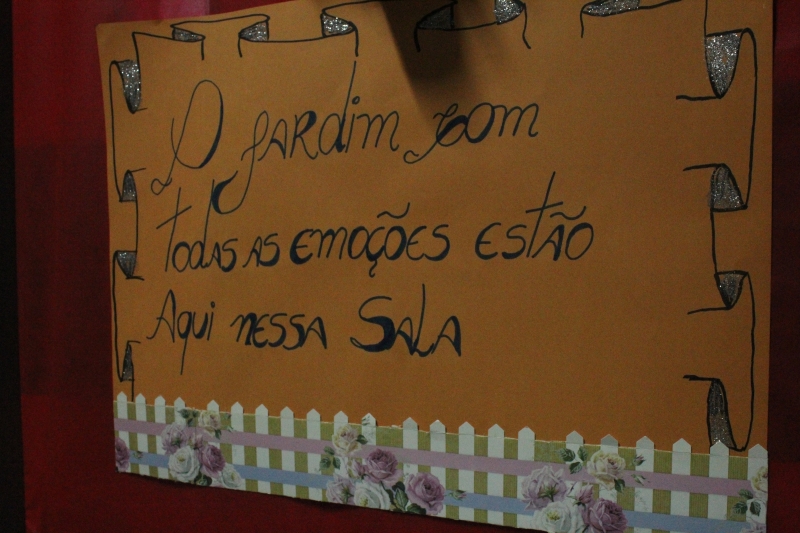 O jardim com
todas as emoções estão
Aqui nessa Sala